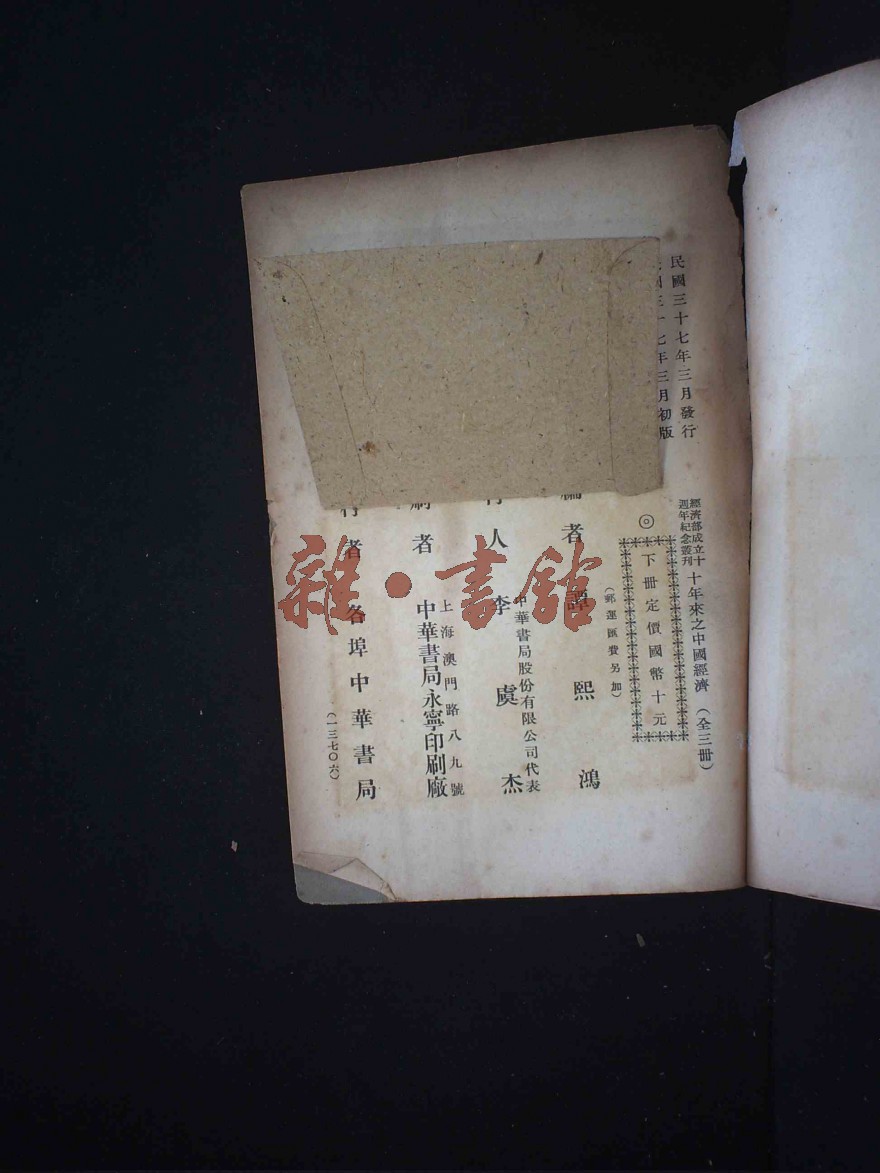 民國三十七年三月發行
國三十七年三月初版
經濟部成立十
週年紀念叢刊
十年來之中國經濟（全三册）
◎
下册定價國幣十元
（郵運匯費另加）
者 譚熙鴻
人 李虞杰
中華書局股份有限公司代表
者
上海澳門路八九號
中華書局永寧印刷廠
者 各埠中華書局
（一三七〇六）
雜·書館